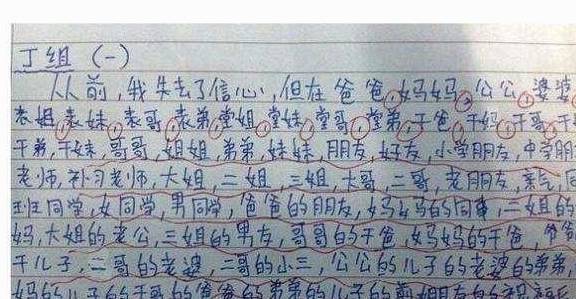 丁组（一）
从前，我失去了信心，但在爸爸，妈妈，公公，婆婆
表姐，表妹，表哥，表弟，堂姐，堂妹，堂哥，堂弟，干爸，干妈，干哥，干
干弟，干妹，哥哥，姐姐，弟弟，妹妹，朋友，好友，小学朋友，中学朋
老师，补习老师，大姐，二姐，三姐，大哥，二哥，老朋友，亲戚，同
班同学，女同学，男同学，爸爸的朋友，妈妈的同事，二姐的
妈，大姐的老公，三姐的男友，哥哥的干爸，妈妈的干爸，爷爷
干儿子，二哥的老婆，二哥的小三，公公的儿子的老婆的弟弟，
妈的儿子的干哥的爸爸的弟弟的儿子的前